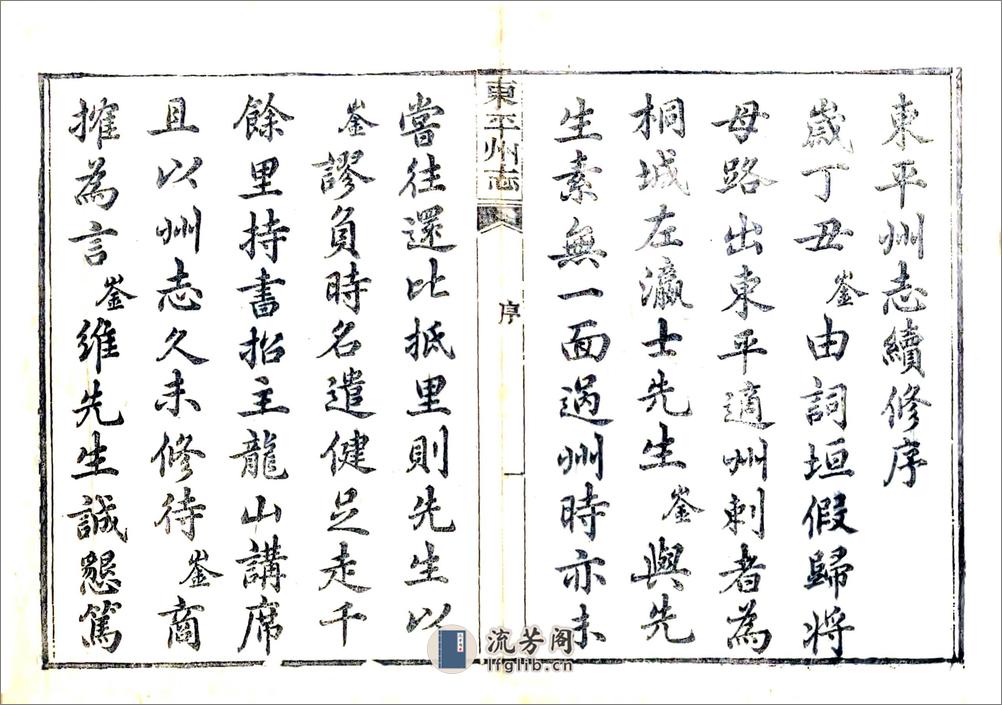 東平州志續修序
歲丁丑崟由詞垣假歸將
母路出東平適州刺者為
桐城左瀛士先生崟與先
生素無一面過州時亦未
東平州志
序
一
嘗往還比抵里則先生以
崟謬負時名遣健足走千
餘里持書招主龍山講席
且以州志久未修待崟商
搉為言崟維先生誠懇篤
流芳阁
lfglib.cn